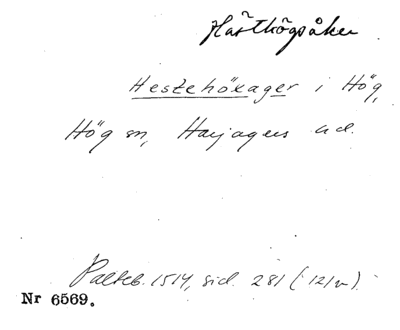 Hästhögsåker
Hestehökager i Hög,
Hög sn, Harjagers hd.
Palteb. 1514, sid. 281 (12/v).
Nr 6569.